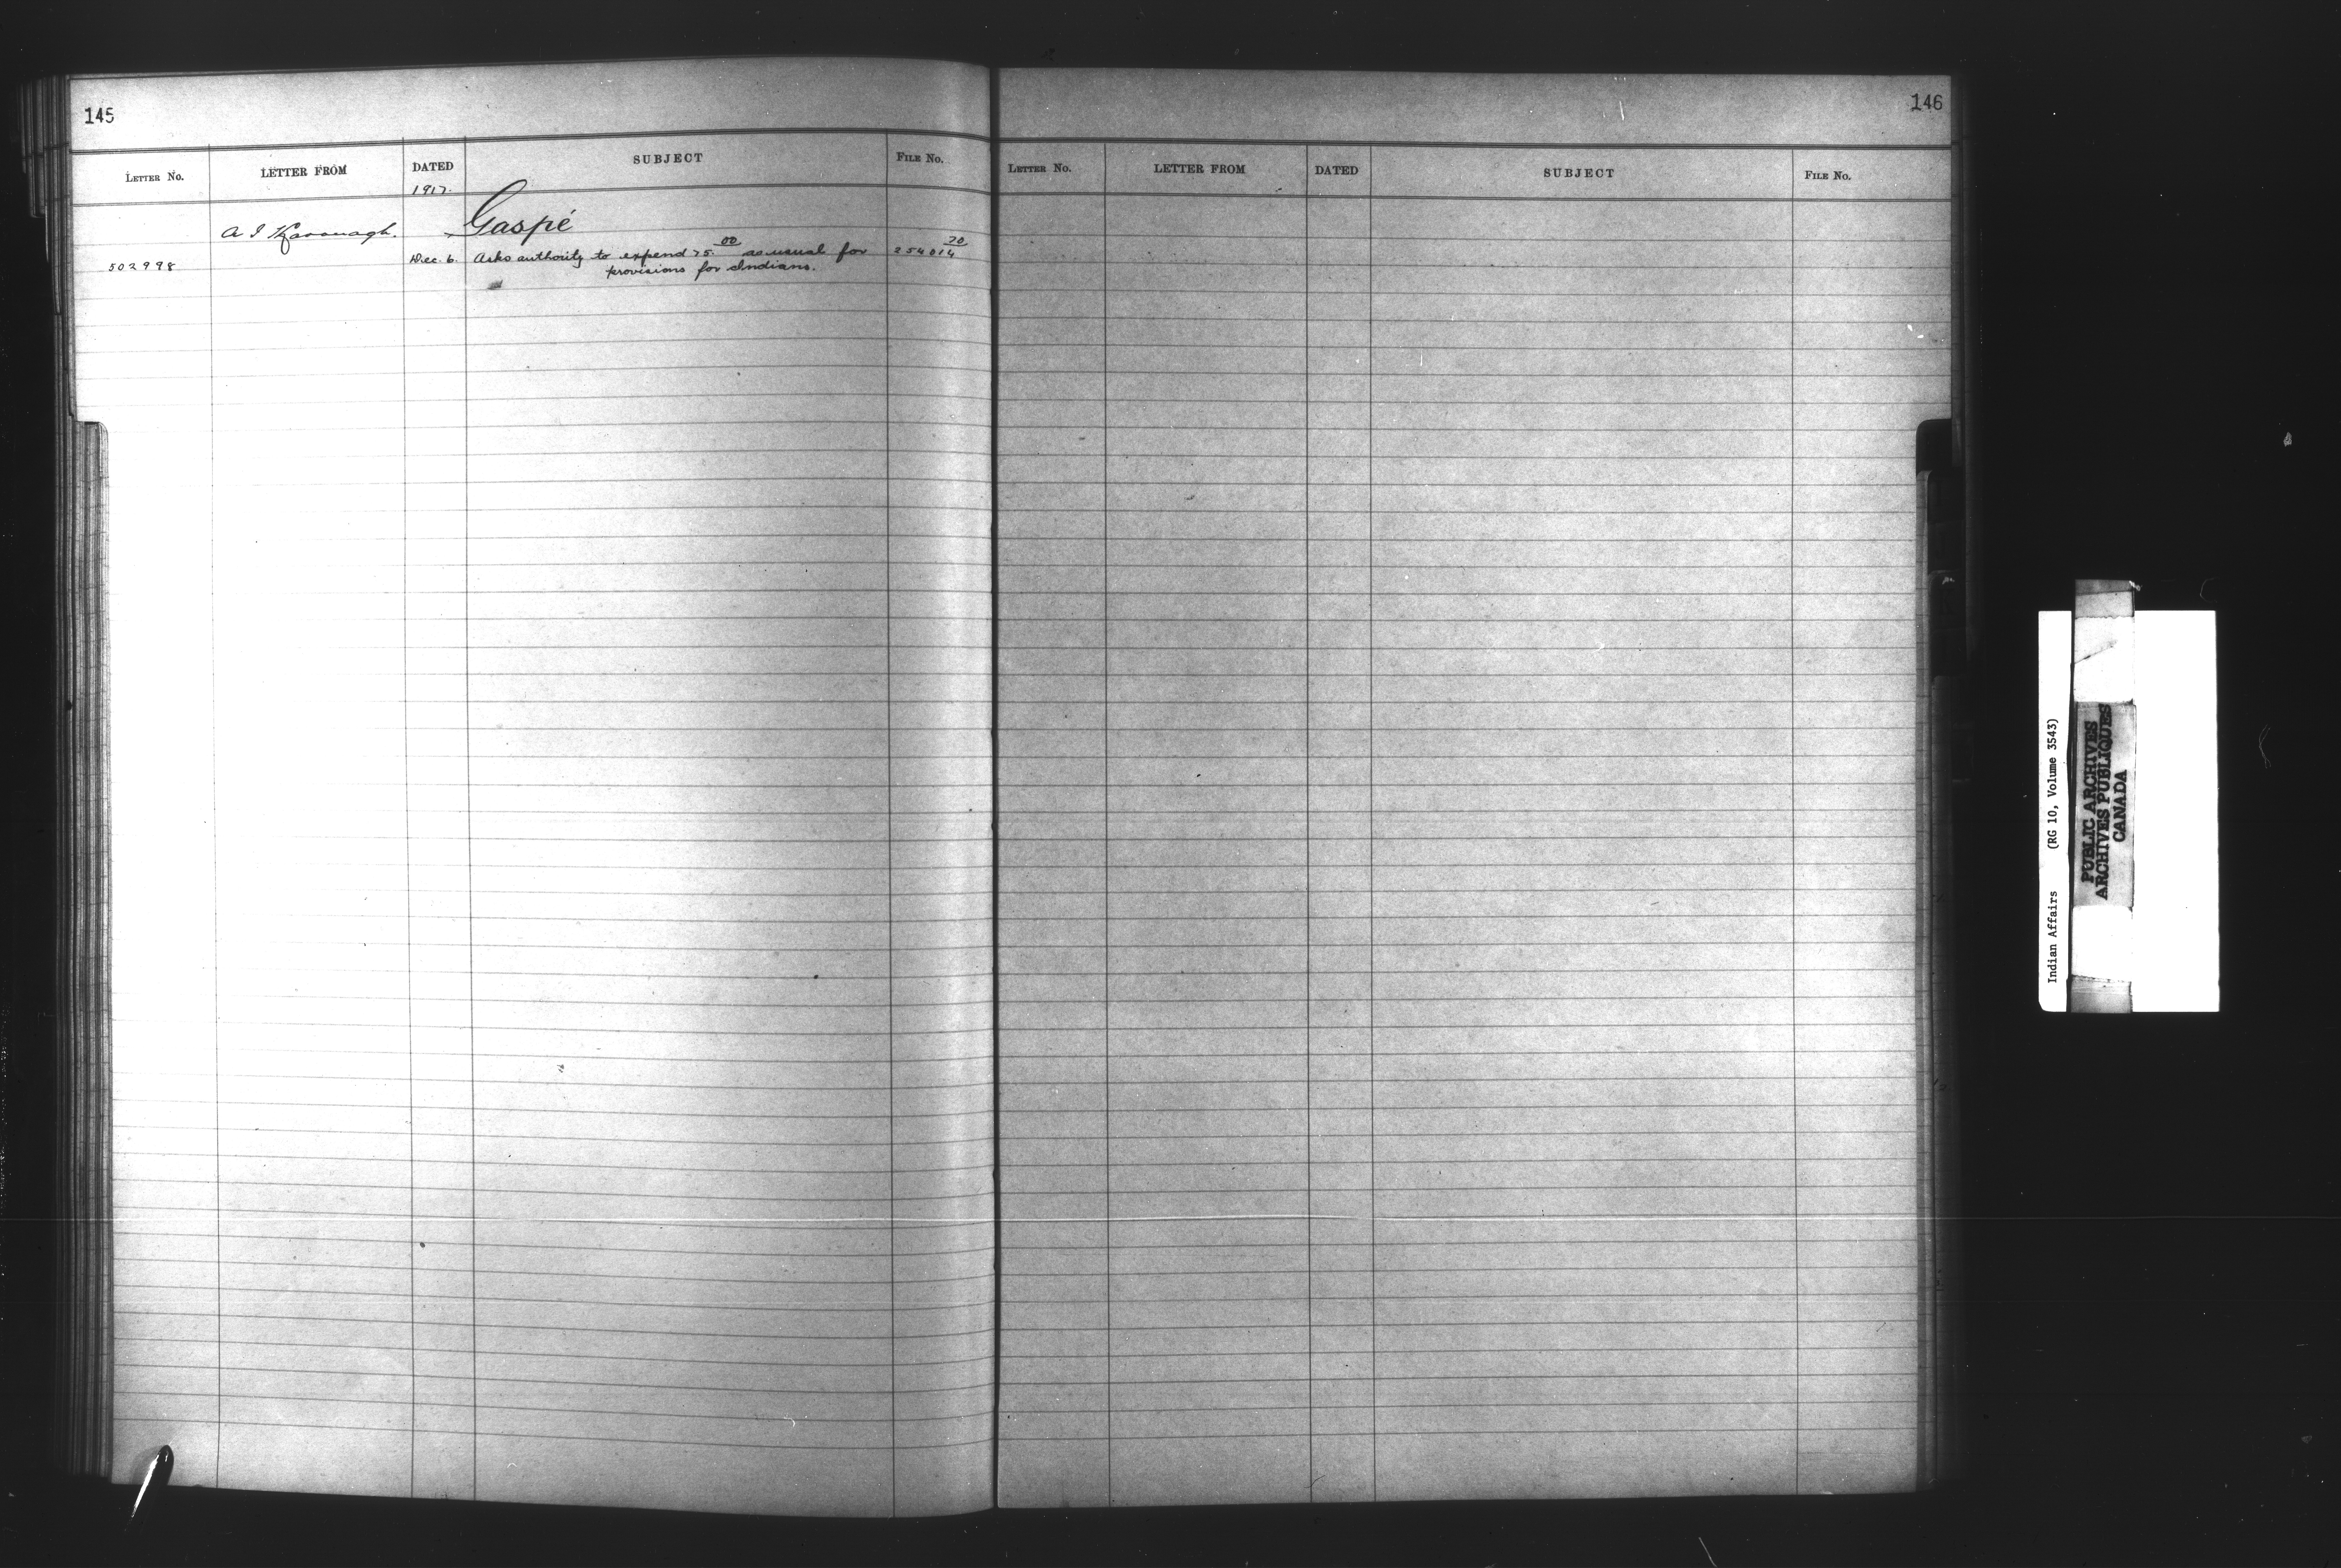 145
LETTER NO. LETTER FROM DATED SUBJECT FILE No.
1917.
A J Kavanagh. Gaspé
502998 Dec. 6. Asks authority to expend 75.00 as usual for 254014 20
provisions for Indians.
146
LETTER NO. LETTER FROM DATED SUBJECT FILE No.
Indian Affairs (RG 10, Volume 3543)
PUBLIC ARCHIVES
ARCHIVES PUBLIQUES
CANADA